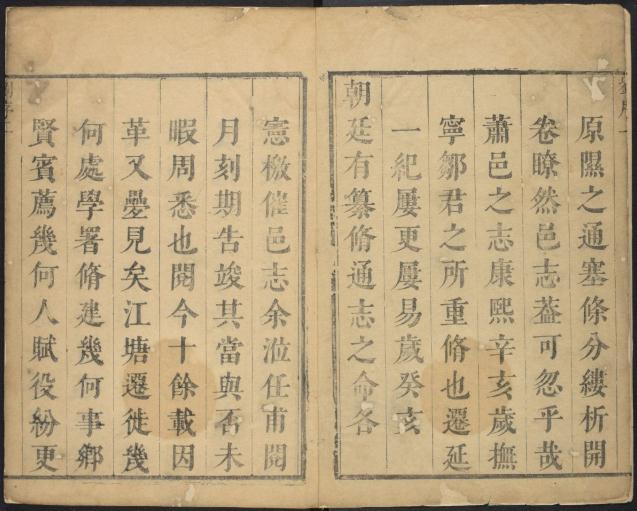 原隰之通塞條分縷析開
卷瞭然邑志蓋可忽乎哉
蕭邑之志康熙辛亥歲撫
寧鄒君之所重脩也遷延
一紀屢更屢易歲癸亥
朝廷有纂脩通志之命各
憲檄催邑志余涖任甫閱
月刻期告竣其當與否未
暇周悉也閱今十餘載因
革又疊見矣江塘遷徙幾
何處學署脩建幾何事鄉
賢賓薦幾何人賦役紛更